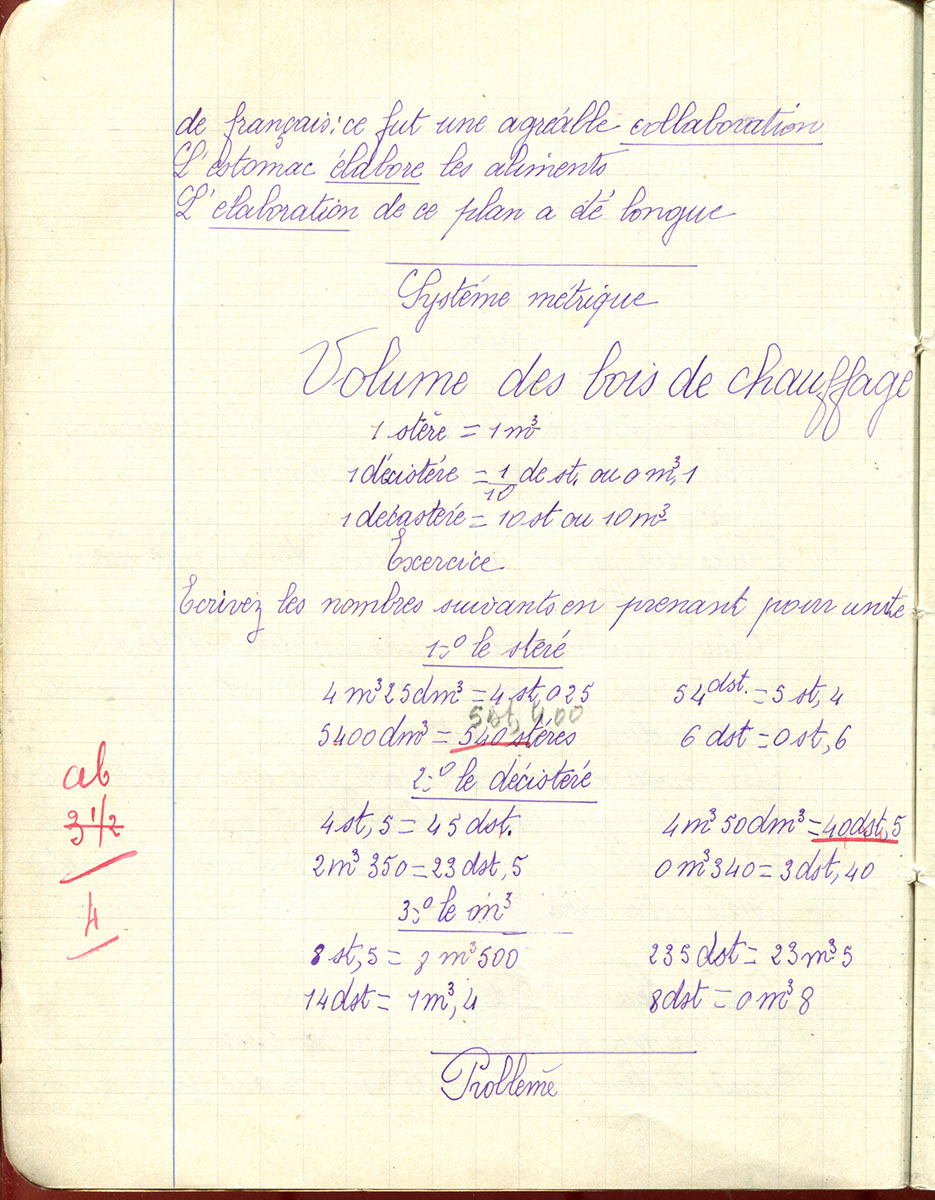 de français: ce fut une agréable collaboration
L'estomac élabore les aliments
L'élaboration de ce plan a été longue
Système métrique
Volume des bois de chauffage
1 stère = 1 m³
1 décistére = 1/10 de st. ou 0 m³,1
1 décastére = 10 st ou 10 m³
Exercice
Ecrivez les nombres suivants en prenant pour unité
1.º le stéré
4 m³ 25 dm³ = 4 st, 025 54 dst. = 5 st, 4
5 st, 400
5400 dm³ = 540 stéres 6 dst = 0 st, 6
2.º le décistéré
4 st, 5 = 45 dst. 4 m³ 50 dm³ = 40 dst, 5
2 m³ 350 = 23 dst, 5 0 m³ 340 = 3 dst, 40
3.º le m³
8 st, 5 = 8 m³ 500 235 dst = 23 m³ 5
14 dst = 1 m³, 4 8 dst = 0 m³ 8
Problème
ab
3 1/2
4